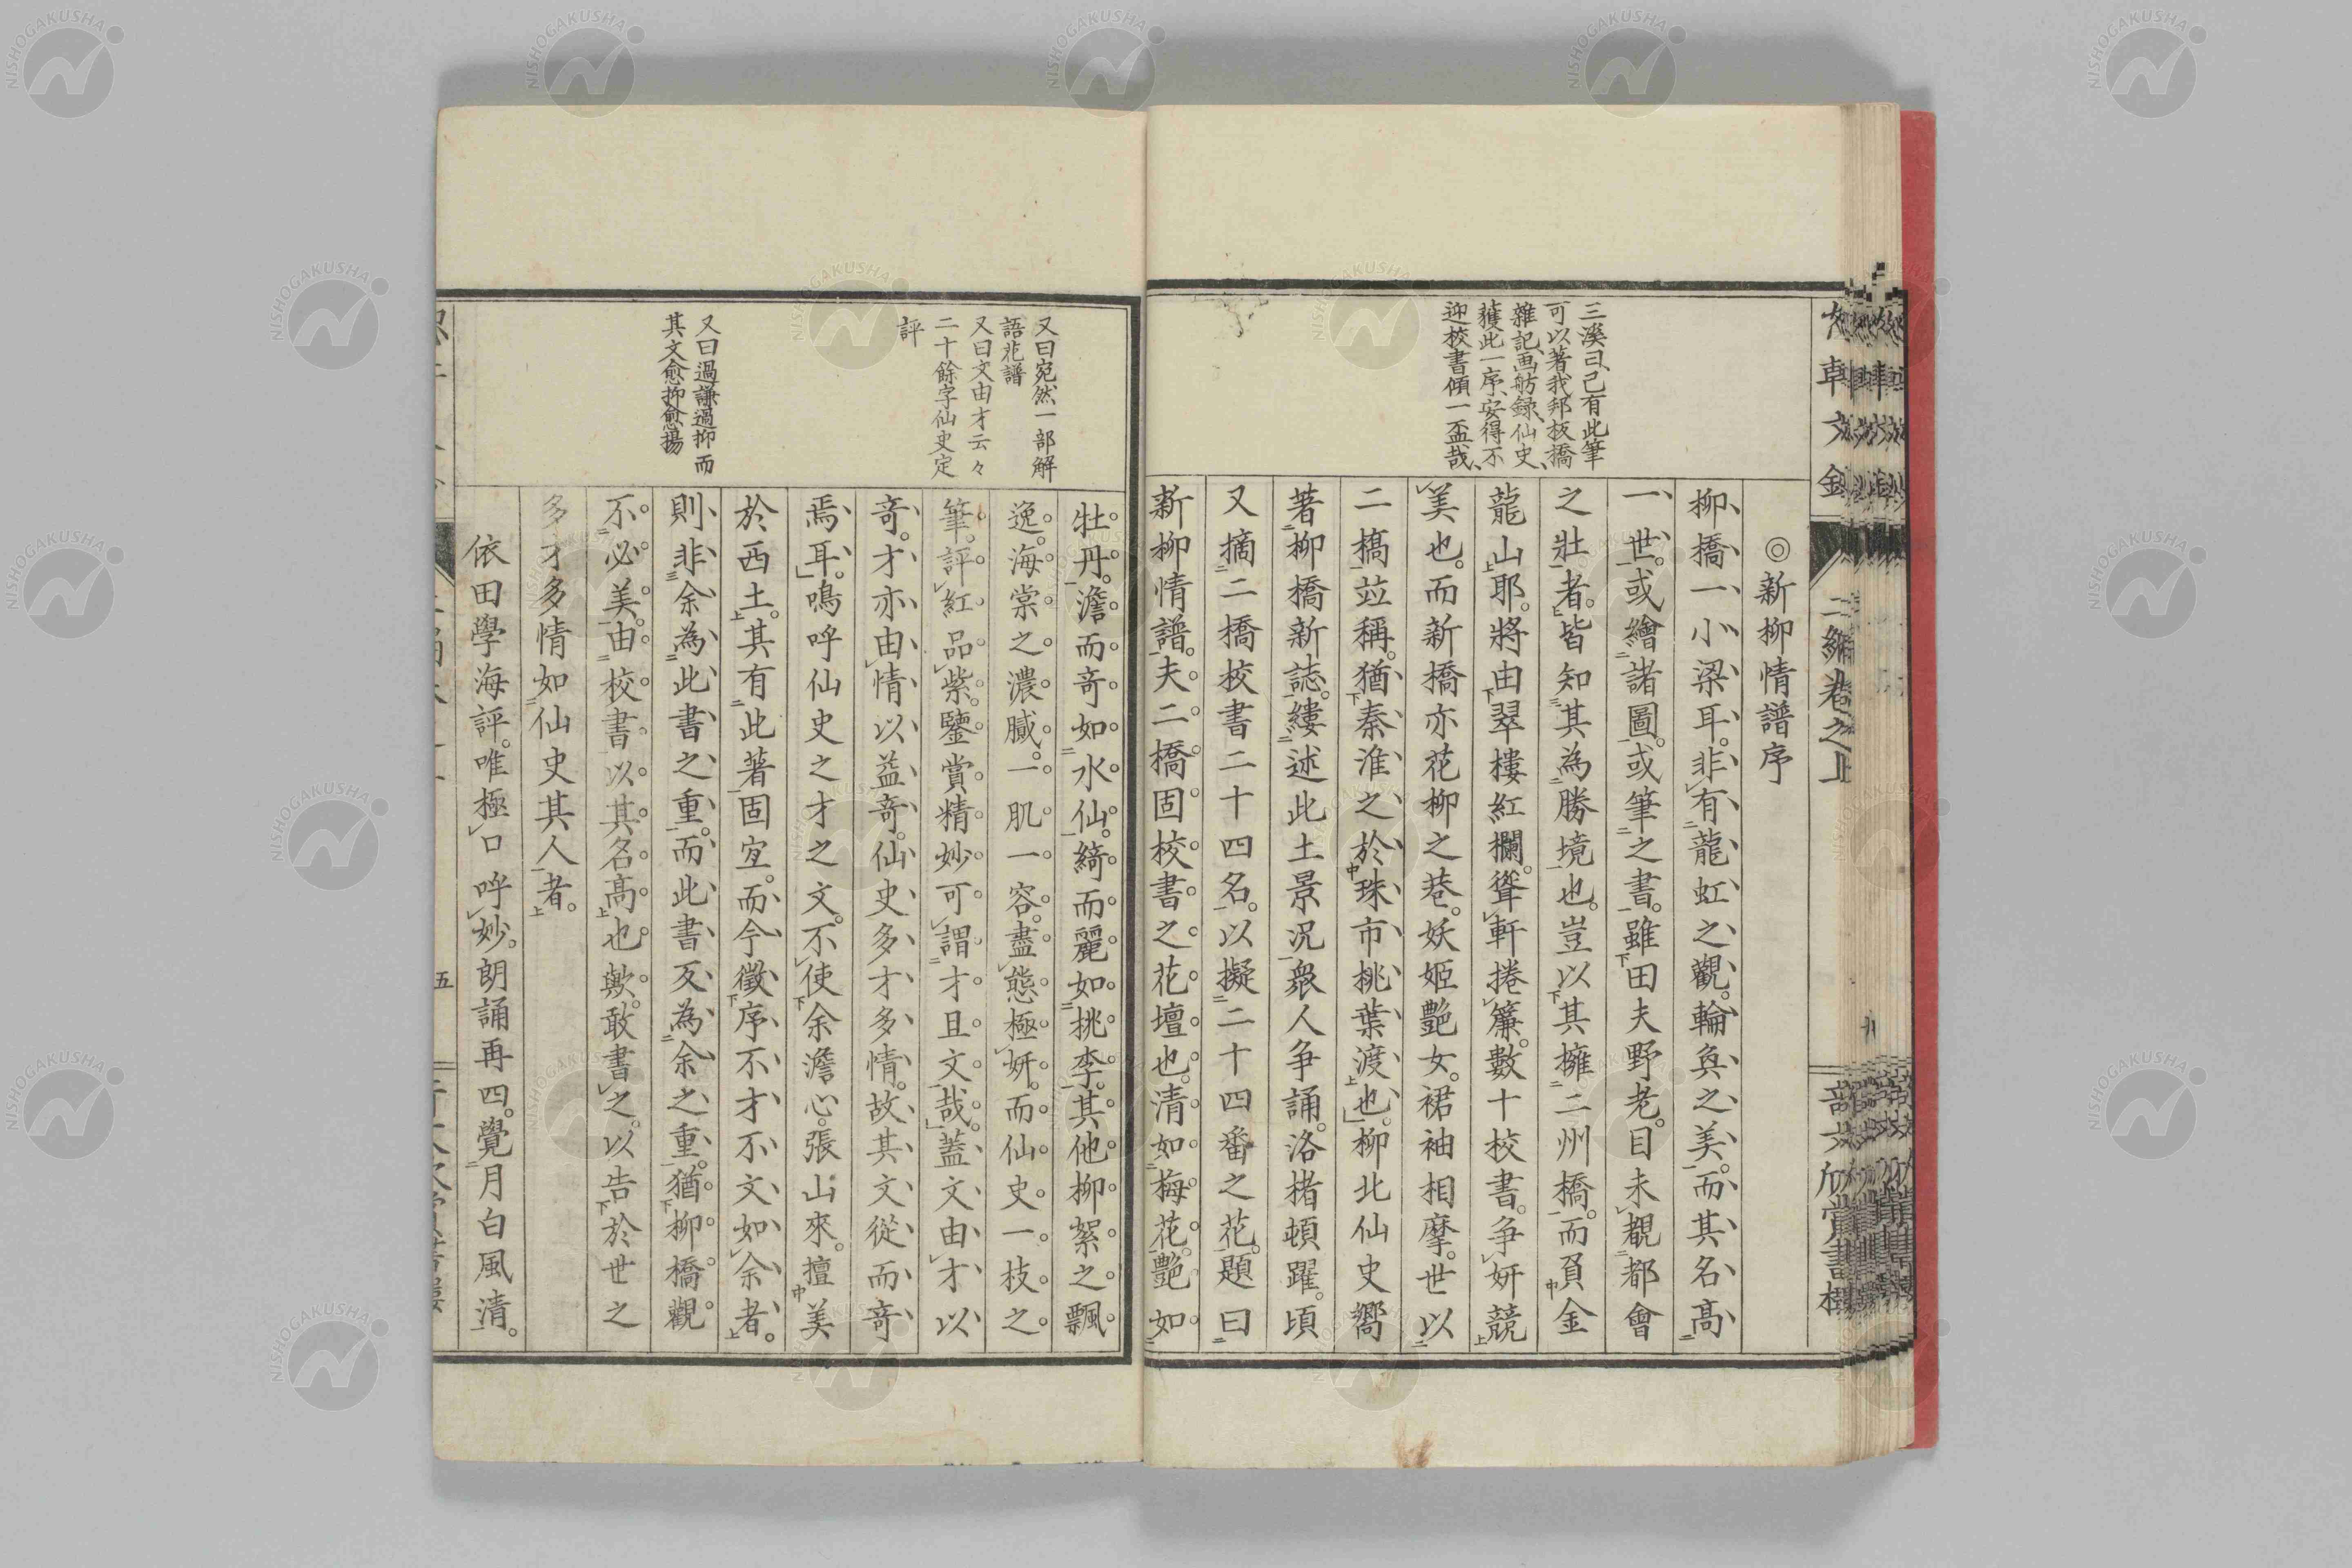 二編卷之上
◎新柳情譜序
柳橋一小梁耳。非有龍虹之觀。輪奐之美。而其名高
一世。或繪諸圖。或筆之書。雖田夫野老。目未覩都會
之壯者。皆知其為勝境也。豈以其擁二州橋。而負金
龍山耶。將由翠樓紅欄。聳軒捲簾。數十校書。爭妍競
美也。而新橋亦花柳之巷。妖姬艷女。裙袖相摩。世以
二橋竝稱。猶秦淮之於珠市桃葉渡也。柳北仙史嚮
著柳橋新誌。縷述此土景況。衆人争誦。洛楮頓躍。頃
又摘二橋校書二十四名。以擬二十四番之花。題曰
新柳情譜。夫二橋固校書之花壇也。清如梅花。艷如
三溪曰、已有此筆
可以著我邦板橋
雜記、画舫録、仙史、
獲此一序、安得不
迎校書傾一盃哉、
牡丹。澹而奇如水仙。綺而麗如桃李。其他柳絮之飄
逸。海棠之濃膩。一肌一容。盡態極妍。而仙史一枝之
筆。評紅品紫。鑒賞精妙。可謂才且文哉。蓋文由才以
奇。才亦由情以益奇。仙史多才多情。故其文從而奇
焉耳。嗚呼仙史之才之文。不使余澹心。張山來。擅美
於西土。其有此著固宜。而今徵序不才不文如余者。
則非余為此書之重。而此書反為余之重。猶柳橋觀
不必美。由校書以其名高也歟。敢書之。以告於世之
多才多情如仙史其人者。
依田學海評。唯極口呼妙。朗誦再四。覺月白風清。
又曰宛然一部解
語花譜
又曰文由才云々
二十餘字仙史定
評
又曰過謙過抑而
其文愈抑愈揚
五
NISHOGAKUSHA